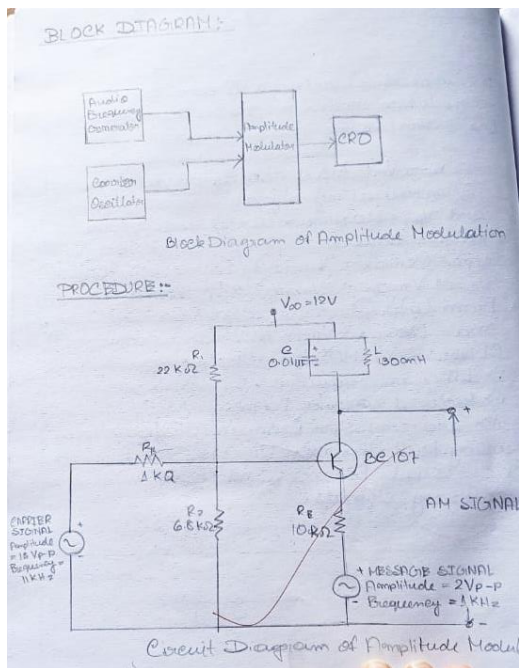 BLOCK DIAGRAM:-
Audio
Frequency
Generator
Carrier
Oscillator
Amplitude
Modulator
CRO
Block Diagram of Amplitude Modulation
PROCEDURE:-
VDD=12V
R1
22KΩ
C
0.01uF
L
1300mH
+
RB
1KΩ
BC107
R2
6.8KΩ
RE
10
AM SIGNAL
CARRIER
SIGNAL
Amplitude
Vp-p
Frequency=
11KHz
+
-
+ MESSAGE SIGNAL
Amplitude = 2Vp-p
- Frequency = 1KHz
-
Circuit Diagram of Amplitude Modul